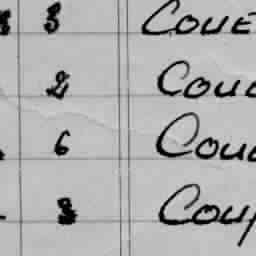 3 COUE
2 COUC
6 COUC
3 COUP